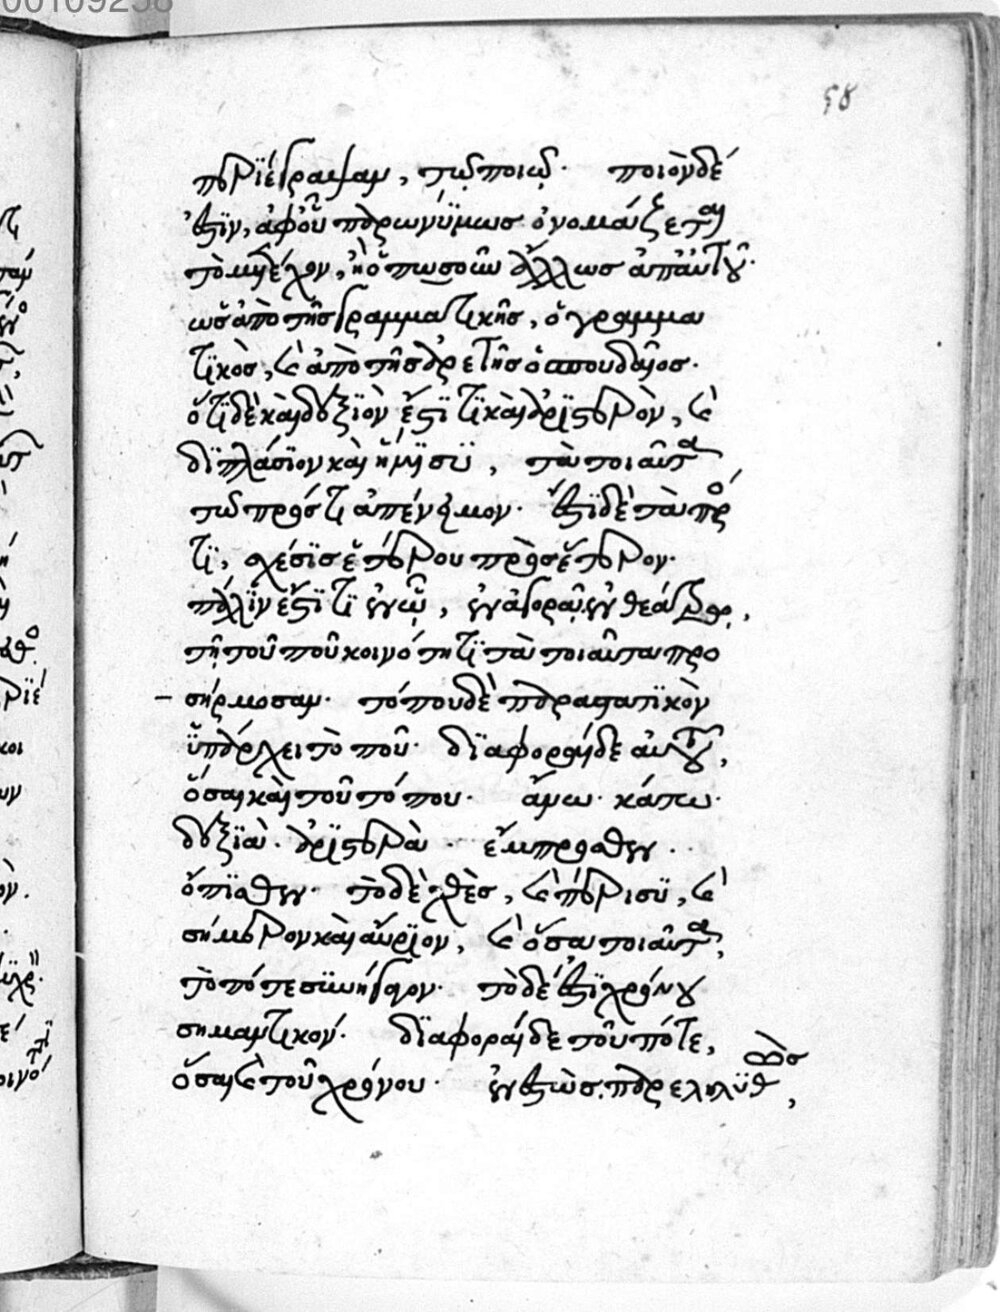 00109258
58
περϊέγραψαν, τῷ ποιῷ· ποιὸν δέ
ἐστϊν, ἀφ' οὗ παρωνύμως ὀνομάζεται
τὸ μετέχον, ἢ ὁπωσοῦν ἄλλως ἀπ' αὐτοῦ·
ὡς ἀπὸ τῆς γραμματικῆς, ὁ γραμμα
τϊκὸς, καὶ ἀπὸ τῆς ἀρετῆς ὁ σπουδαῖος·
ὅτι δὲ καὶ δεξϊὸν ἐστϊ τϊ καὶ ἀρϊστερὸν, καὶ
δϊπλάσϊον καὶ ἥμϊσϋ, τὰ τοιαῦτα
τῷ πρός τι ἀπένειμον· ἔστϊ δὲ τὰ πρός
τϊ, σχέσϊς ἑτέρου πρὸς ἕτερον·
πάλϊν ἐστϊ τϊ ἐν ᾧ, ἐν ἀγορᾷ, ἐν θεάτρῳ,
τῇ τοῦ ποῦ κοινότητϊ τὰ τοιαῦτα προ
σήρμοσαν· τόπου δὲ παραστατϊκὸν
ὑπάρχει τὸ ποῦ· δϊαφοραὶ δὲ αὐτοῦ,
ὅσαι καὶ τοῦ τόπου· ἄνω· κάτω·
δεξϊὰ· ἀρϊστερὰ· ἔμπροσθεν·
ὄπϊσθεν· τὸ δὲ χθὲς, καὶ πέρισϋ, καὶ
σήμερον καὶ αὔρϊον, καὶ ὅσα τοιαῦτα,
τὸ πότε συνήγαγον· τὸ δέ ἐστϊ χρόνου
σημαντικόν· δϊαφοραὶ δὲ τοῦ πότε,
ὅσαι καὶ τοῦ χρόνου· ἐνεστὼς· παρεληλϋθὼς,